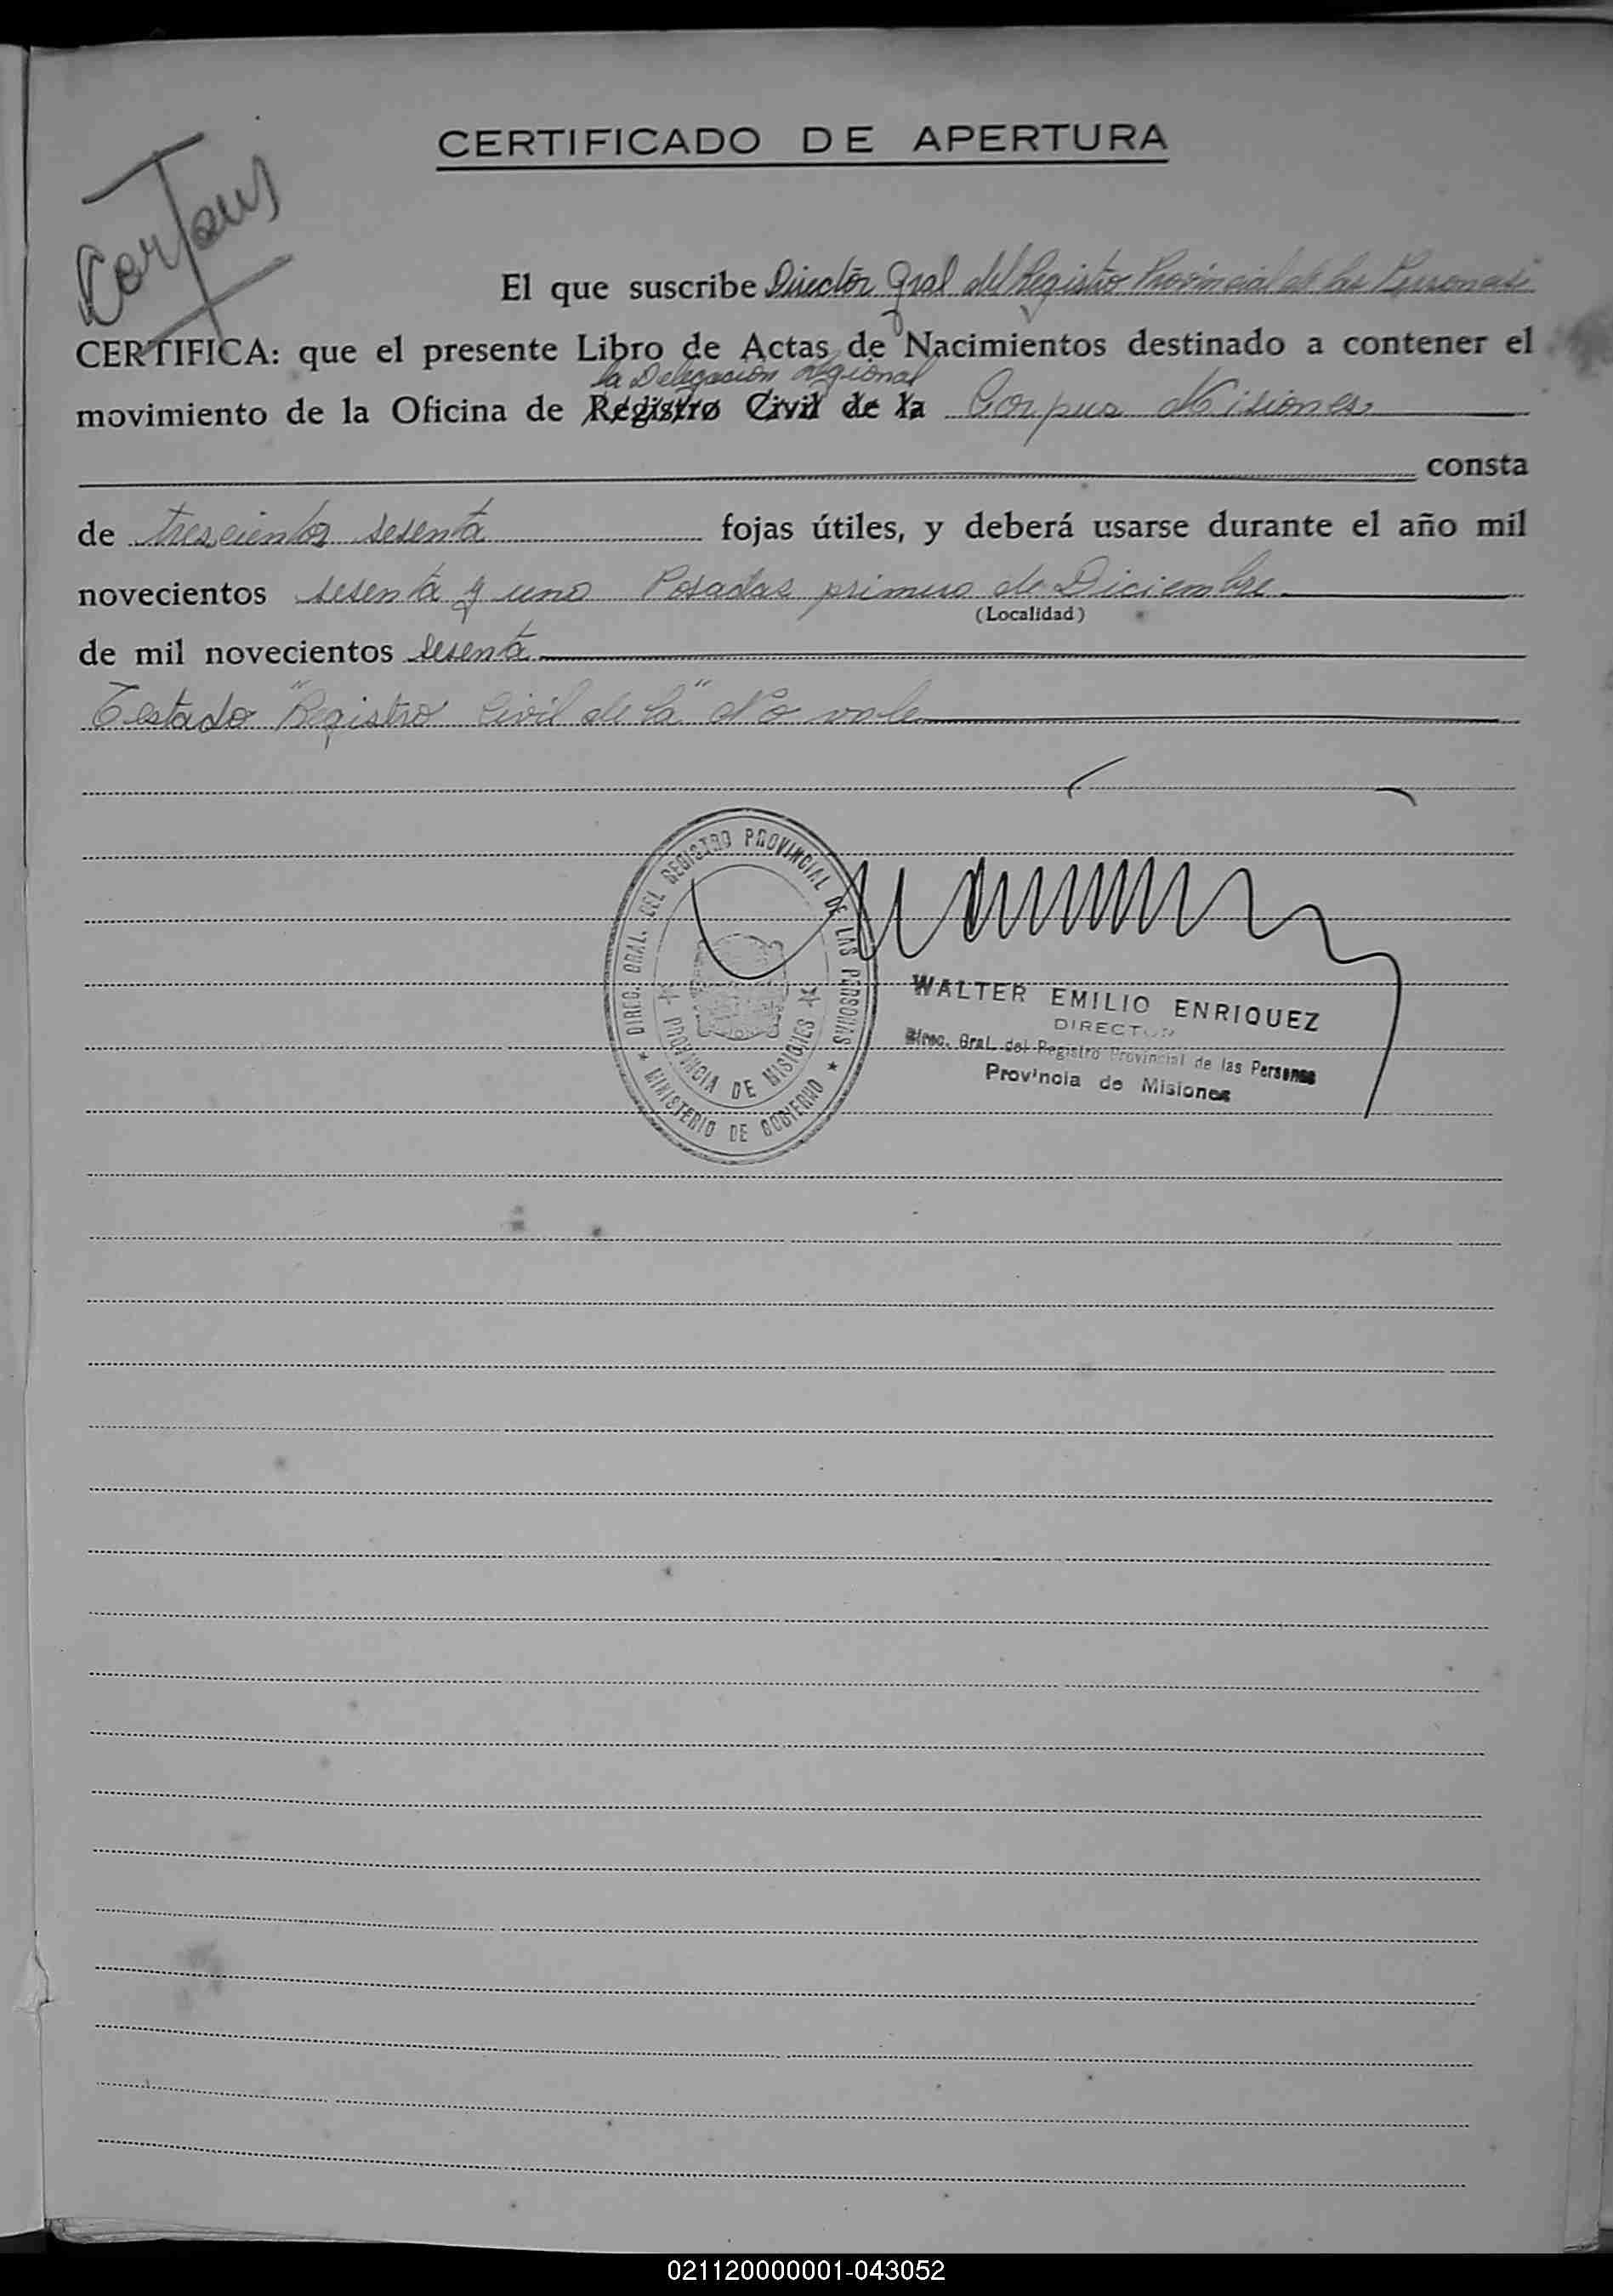 CERTIFICADO DE APERTURA
El que suscribe Directōr Gral del Registro Provincial de las Personas
CERTIFICA: que el presente Libro de Actas de Nacimientos destinado a contener el
la Delegación regional
movimiento de la Oficina de Registro Civil de la Corpus Misiones
consta
de trescientos sesenta fojas útiles, y deberá usarse durante el año mil
novecientos sesenta y uno Posadas primero de Diciembre
(Localidad)
de mil novecientos sesenta
Testado "Registro Civil de la" No vale
DIREC. GRAL. DEL REGISTRO PROVINCIAL DE LAS PERSONAS
PROVINCIA DE MISIONES
MINISTERIO DE GOBIERNO
WALTER EMILIO ENRIQUEZ
DIRECTOR
Direc. Gral. del Registro Provincial de las Personas
Provincia de Misiones
021120000001-043052